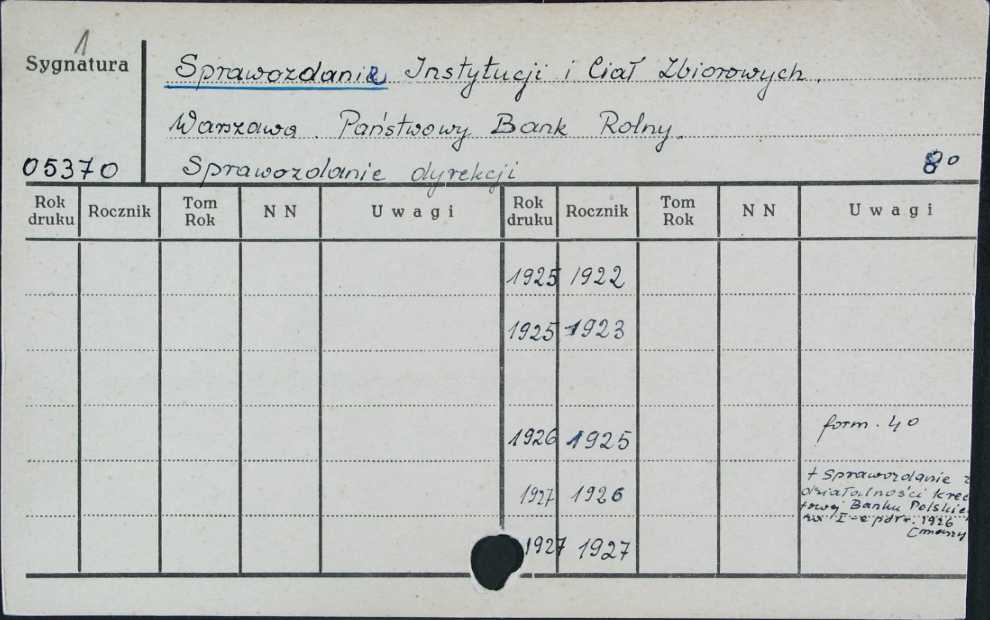 1
Sygnatura
Sprawozdania Instytucji i Ciał Zbiorowych.
Warszawa. Państwowy Bank Rolny.
05370 Sprawozdanie dyrekcji 8°
Rok druku Rocznik Tom Rok N N Uwagi Rok druku Rocznik Tom Rok N N Uwagi
1925 1922
1925 1923
1926 1925 form. 4°
1927 1926 + Sprawozdanie z
działalności kred
towej Banku Polskie
I-e półr. 1926
1927 1927